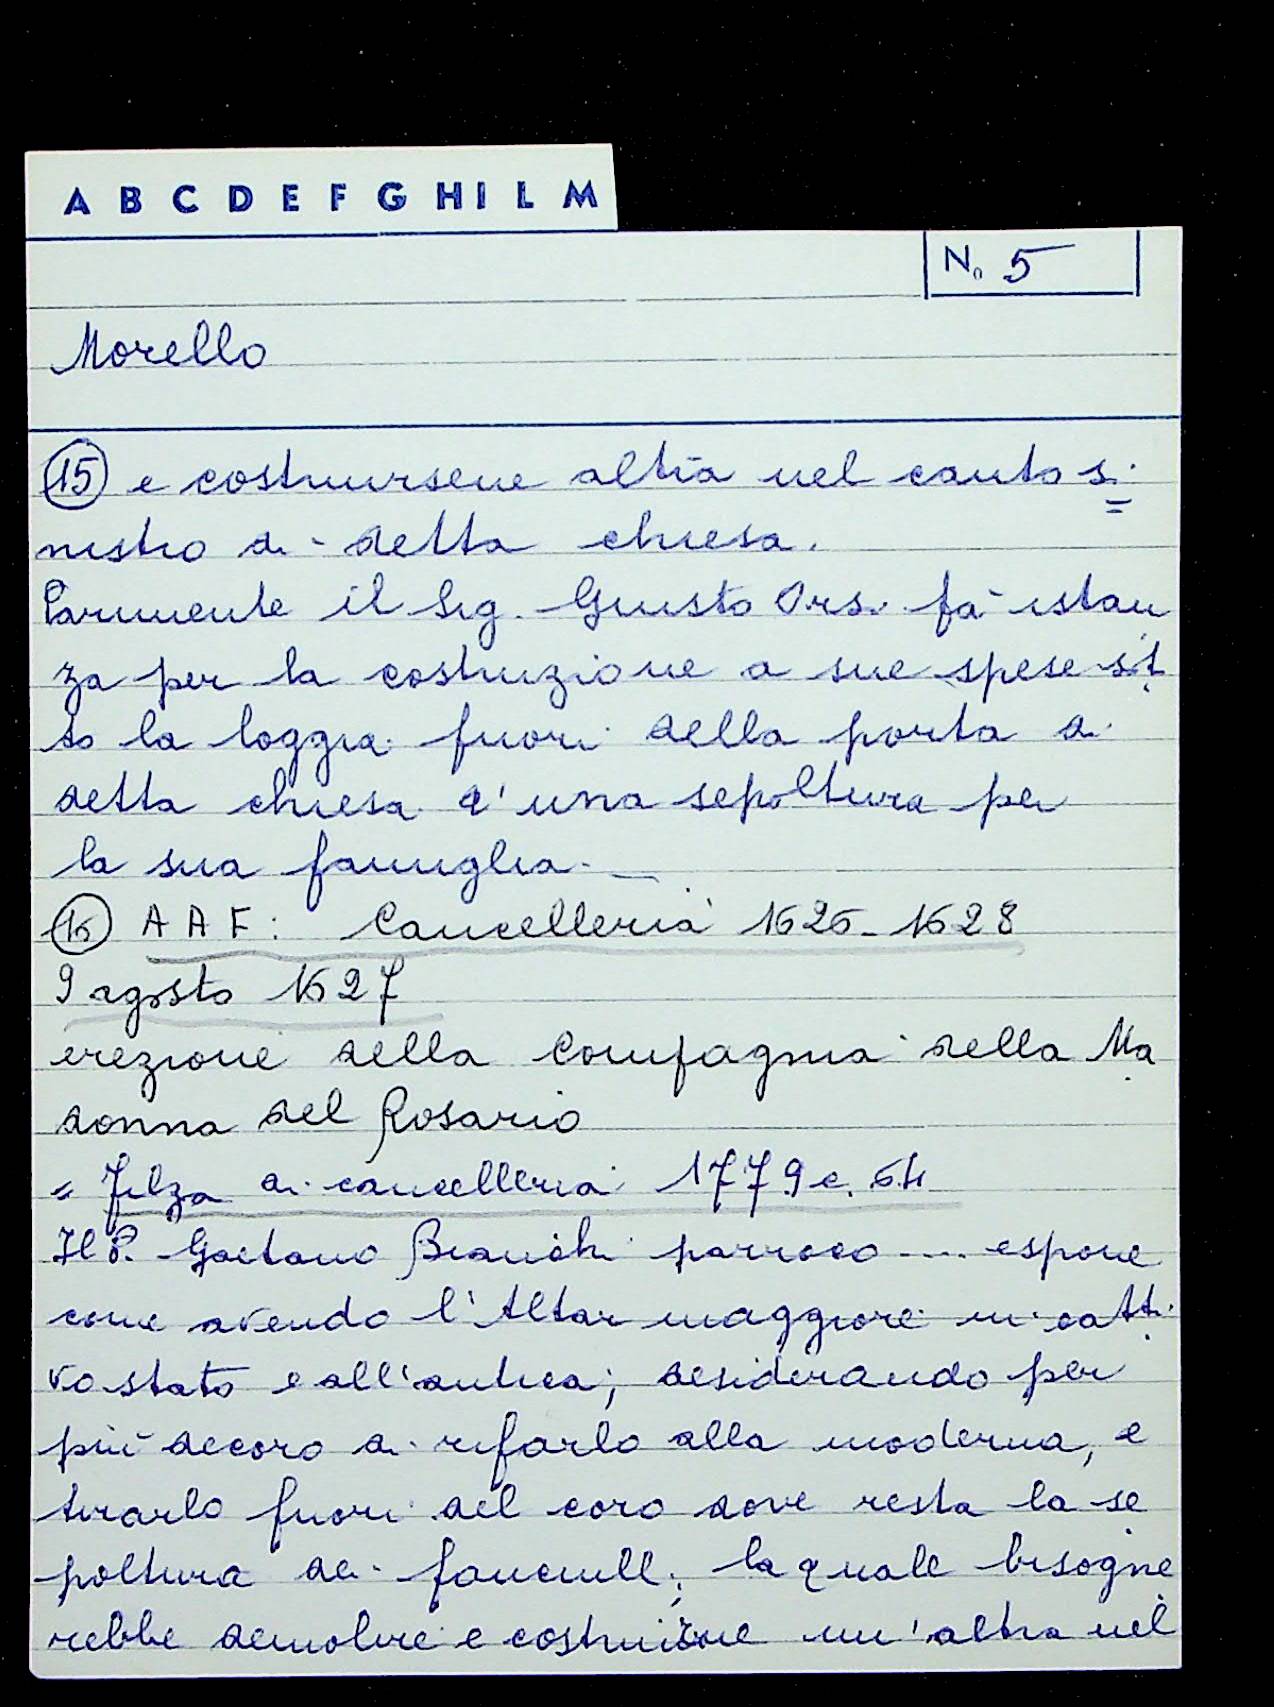 A B C D E F G H I L M
No 5
Morello
15 e costruirsene altra nel canto si
nistro di detta chiesa.
Parimente il Sig. Giusto Orsi fa istan
za per la costruzione a sue spese sot
to la loggia fuori della porta di
detta chiesa d'una sepoltura per
la sua famiglia. _
16 A A F: Cancelleria 1626-1628
9 agosto 1627
erezione della Compagnia della Ma
donna del Rosario
= Filza di cancelleria 1779 c. 64
Il P. Gaetano Bianchi parroco .... espone
come avendo l'Altar maggiore in catti
vo stato e all'antica; desiderando per
più decoro di rifarlo alla moderna, e
tirarlo fuori del coro dove resta la se
poltura dei fanciulli, la quale bisogne
rebbe demolire e costruirne un'altra nel